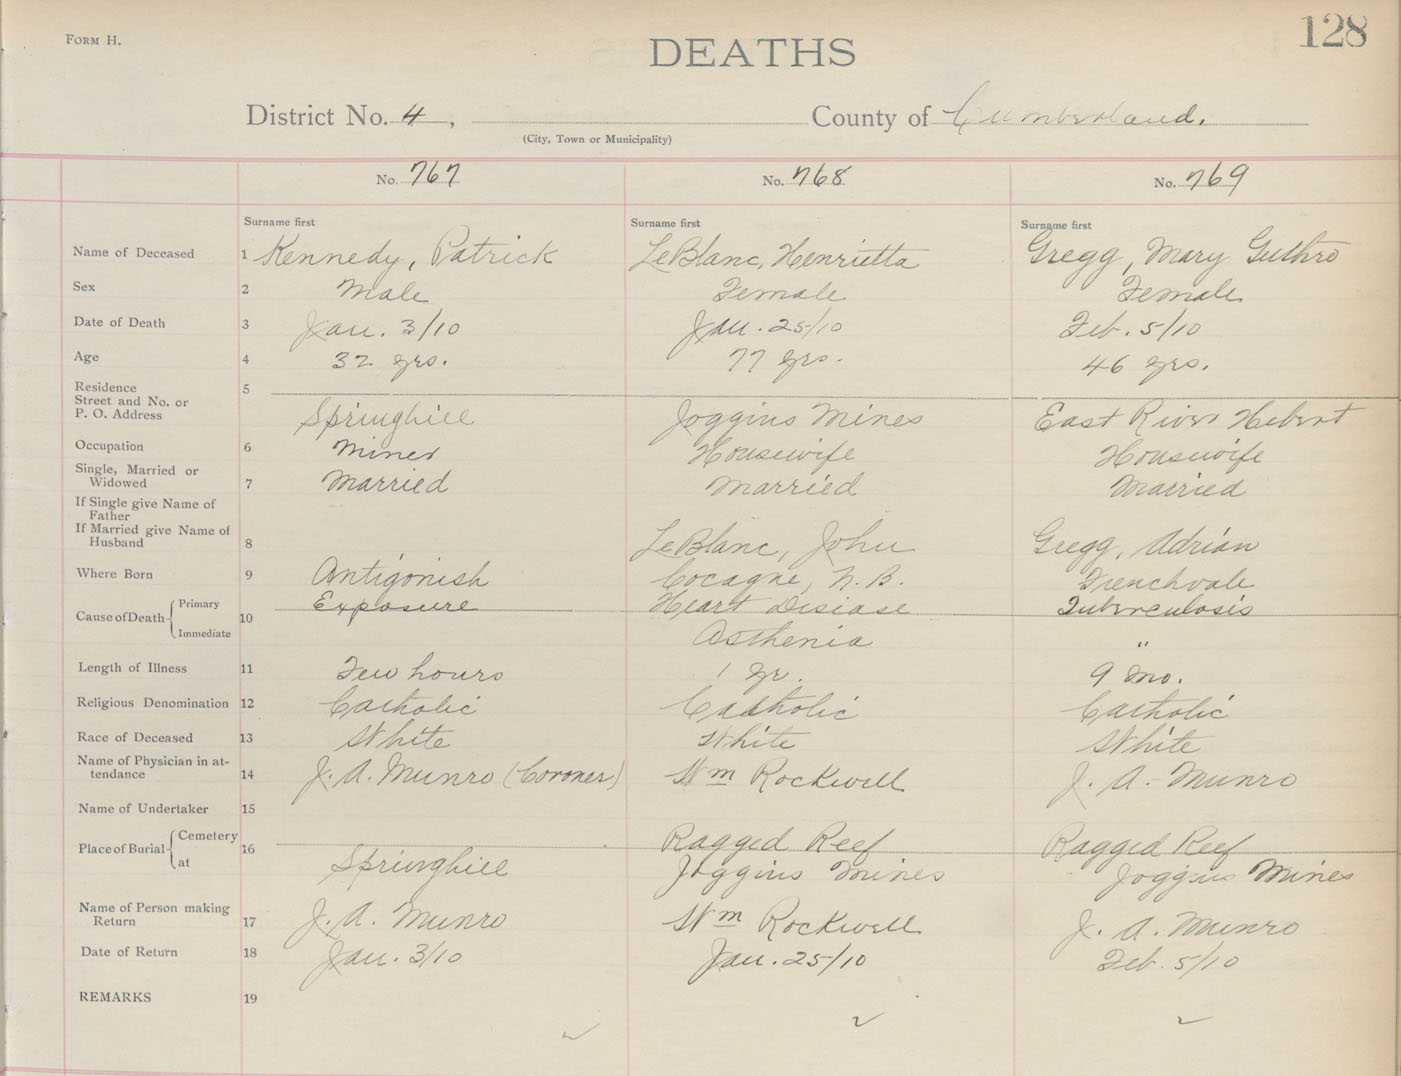 FORM H.
128
DEATHS
District No. 4, County of Cumberland.
(City, Town or Municipality)
No. 767 No. 768 No. 769
Surname first Surname first Surname first
Name of Deceased 1 Kennedy, Patrick LeBlanc, Henrietta Gregg, Mary Guthro
Sex 2 Male Female Female
Date of Death 3 Jan. 3/10 Jan. 25/10 Feb. 5/10
Age 4 32 yrs. 77 yrs. 46 yrs.
Residence 5
Street and No. or
P. O. Address Springhill Joggins Mines East River Hebert
Occupation 6 Miner Housewife Housewife
Single, Married or
Widowed 7 Married Married Married
If Single give Name of
Father
If Married give Name of
Husband 8 LeBlanc, John Gregg, Adrian
Where Born 9 Antigonish Cocagne, N. B. Frenchvale
Cause of Death Primary 10 Exposure Heart Disiase Tuberculosis
Immediate Asthenia "
Length of Illness 11 Few hours 1 yr. 9 mo.
Religious Denomination 12 Catholic Catholic Catholic
Race of Deceased 13 White White White
Name of Physician in at-
tendance 14 J. A. Munro (Coroner) Wm Rockwell J. A. Munro
Name of Undertaker 15
Place of Burial Cemetery 16 Ragged Reef Ragged Reef
at Springhill Joggins Mines Joggins Mines
Name of Person making
Return 17 J. A. Munro Wm Rockwell J. A. Munro
Date of Return 18 Jan. 3/10 Jan. 25/10 Feb. 5/10
REMARKS 19